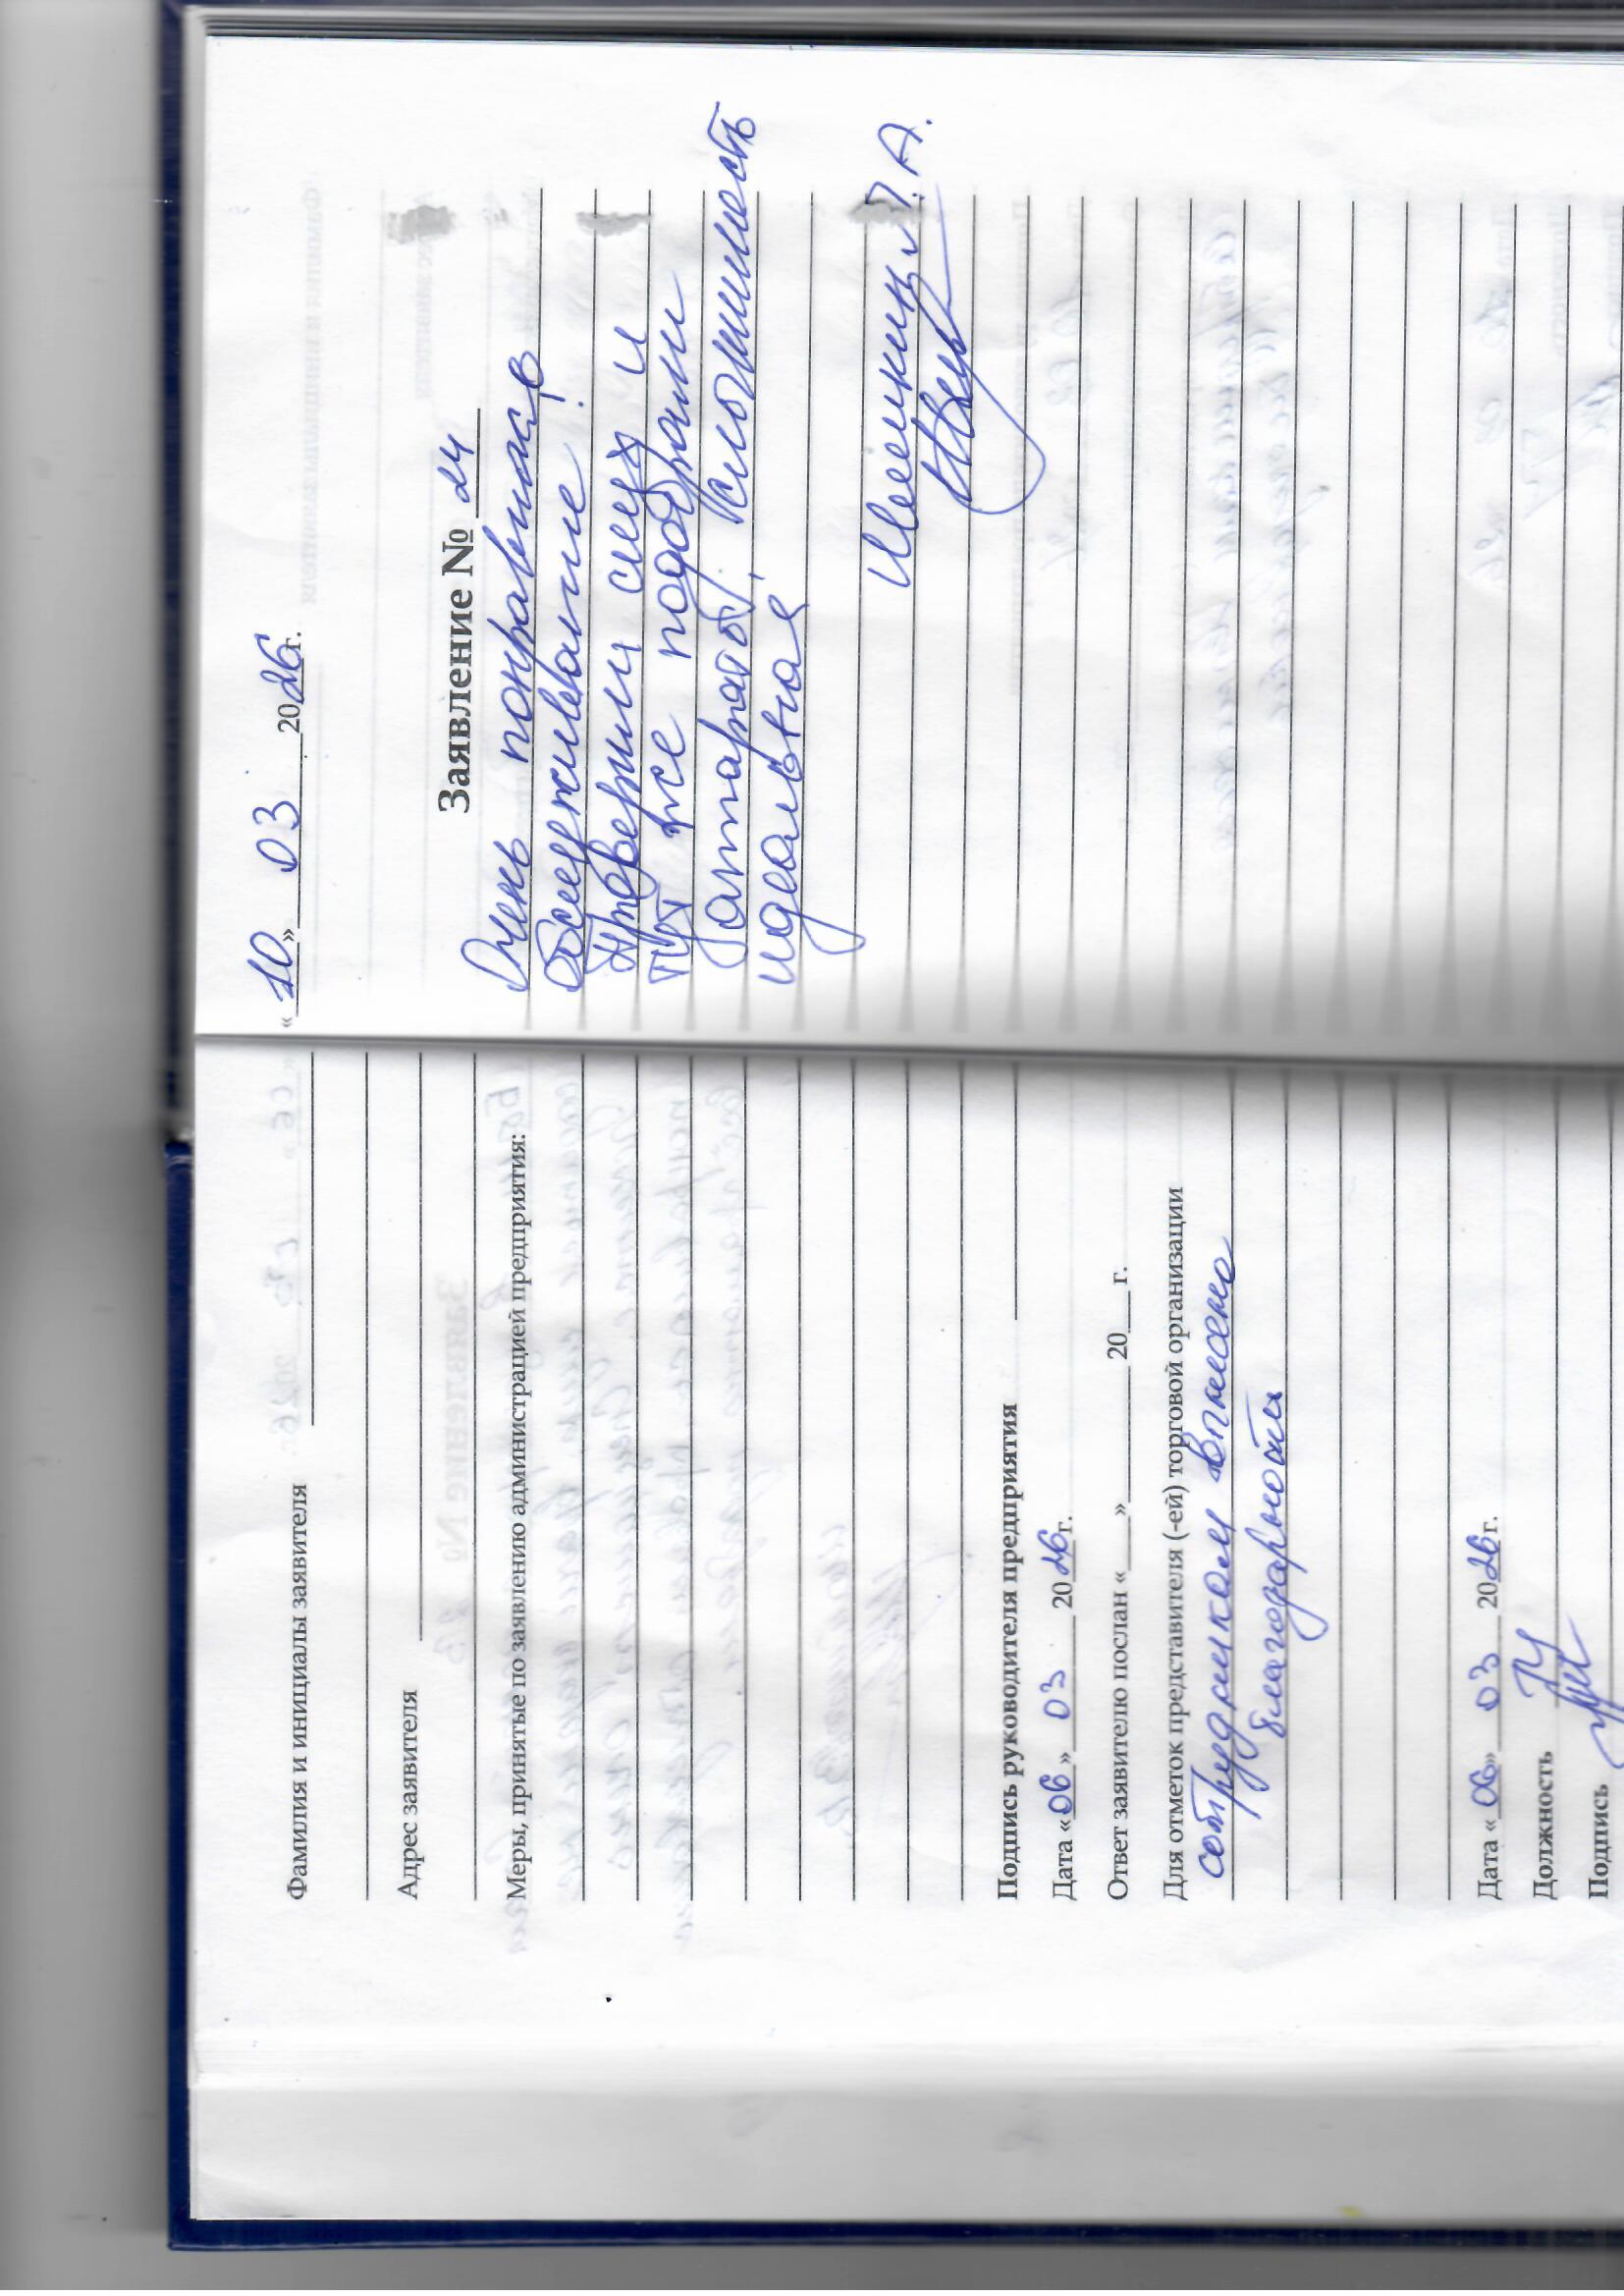 Фамилия и инициалы заявителя
Адрес заявителя
Меры, принятые по заявлению администрацией предприятия:
Подпись руководителя предприятия
Дата «06» 03 2026г.
Ответ заявителю послан «___»________20___г.
Для отметок представителя (-ей) торговой организации
сотрудникам вынесена
благодарность
Дата «06» 03 2026г.
Должность
Подпись
«10» 03 2026г.
Заявление № 24
Очень понравилось
обслуживание!
проверили слух и
тут же подобрали
аппарат, слышимость
идеальная
Т. А.